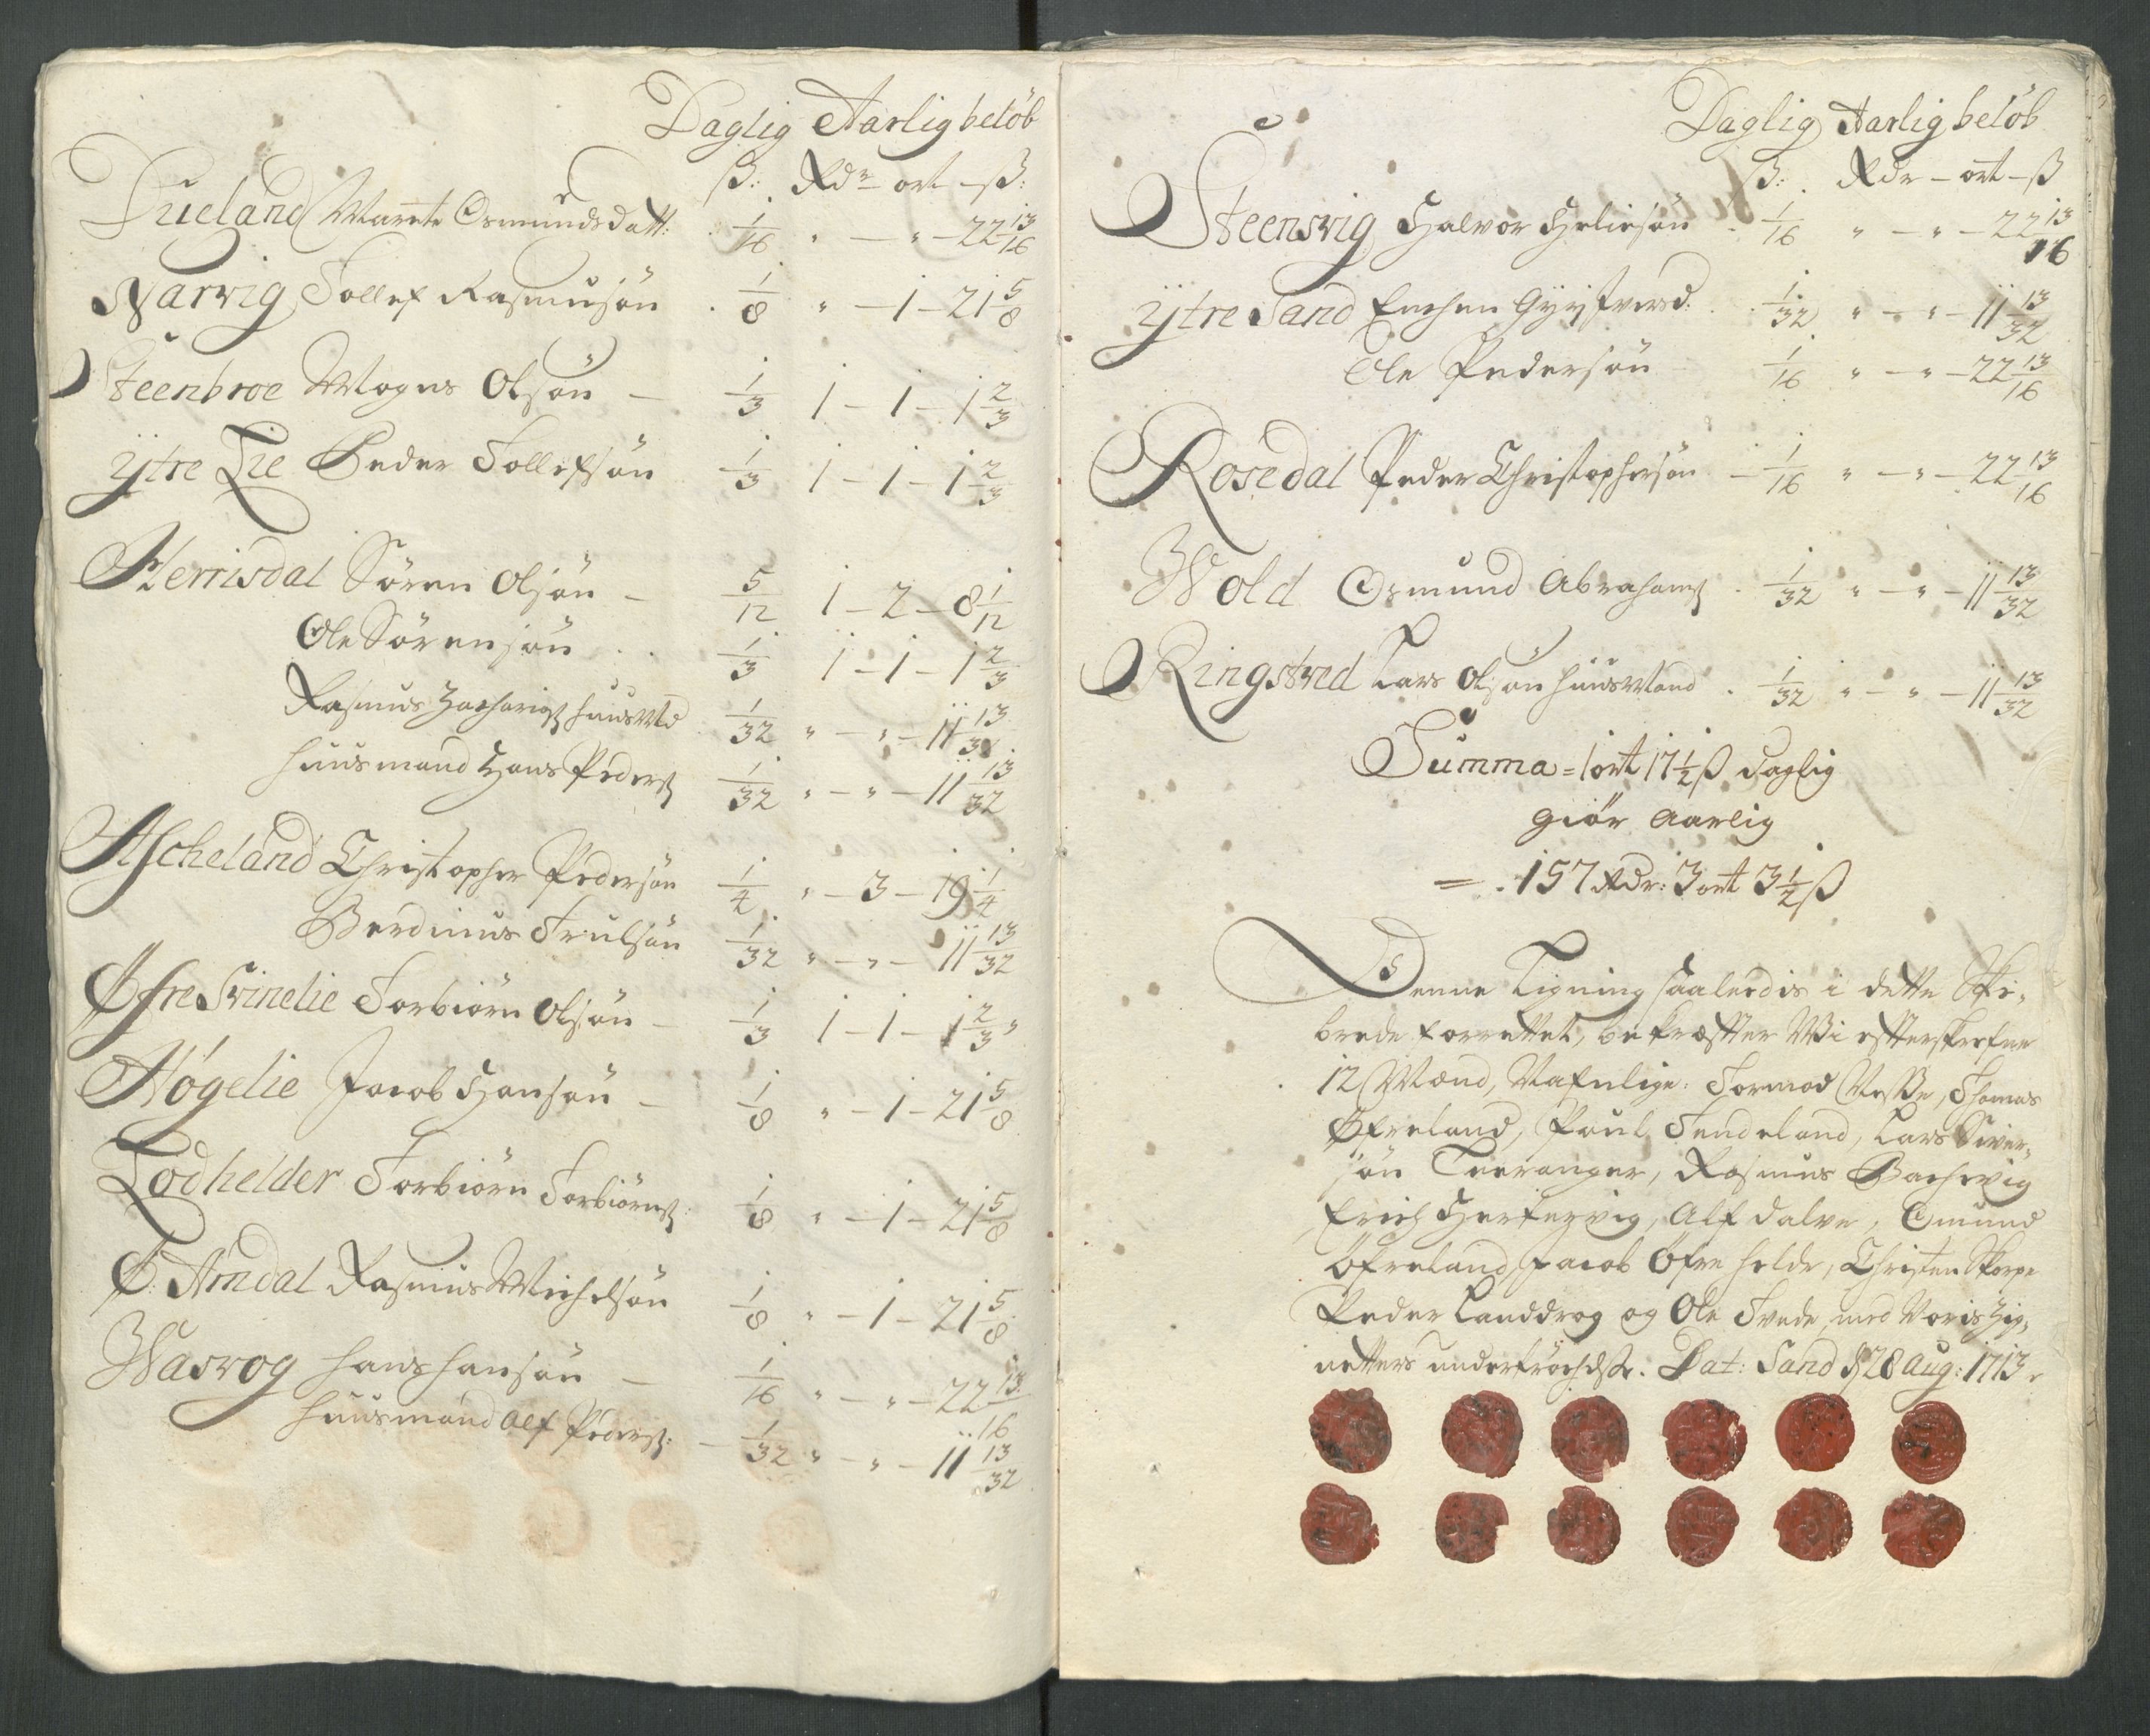 Daglig Aarlig beløb
ß: Rdr ort ß:
Dueland Marrete Osmundsdatt: 1/16 " — " — 22 13/16
Narvig Tollef Rasmusøn 1/8 " — 1 — 21 5/8
Steenbroe Mogns Olsøn — 1/3 1 — 1 — 1 2/3
ÿtre Lie Peder Tollefsøn 1/3 1 — 1 — 1 2/3
Herrisdal Sören Olsøn — 5/12 1 — 2 — 8 1/12
Ole Sörensøn 1/3 1 — 1 — 1 2/3
Rasmus Zachariæs huusMd 1/32 " — " — 11 13/32
huusmand Hans Peders 1/32 " — " — 11 13/32
Ascheland Christopher Pedersøn 1/4 " — 3 — 19 1/4
Berdinus 1/32 " — " — 11 13/32
Øfre Svinelie Torbiørn Olsøn — 1/3 1 — 1 — 1 2/3
Høgelie Jacob Hansøn — 1/8 " — 1 — 21 5/8
Lodhelder Torbiørn Torbiørns: 1/8 " — 1 — 21 5/8
Ø: Amdal Rasmus Michelsøn 1/8 " — 1 — 21 5/8
Wasvog hans hansøn — 1/16 " — " — 22 13/16
huusmand Alf Peders: — 1/32 " — " — 11 13/32
Daglig Aarlig beløb
ß: Rdr — ort — ß
Steensvig Halvor Heliesøn 1/16 " — " — 22 13/16
ÿtre Sand Enchen 1/32 " — " — 11 13/32
Ole Pedersøn 1/16 " — " — 22 13/16
Rosedal Peder Christophersøn — 1/16 " — " — 22 13/16
Wold Osmund Abrahams 1/32 " — " — 11 13/32
Ringstved Lars Olsøn huusMand 1/32 " — " — 11 13/32
Summa = 1 ort 17 1/2 ß daglig
giør Aarlig
= 157 Rdr: 3 ort 3 1/2 ß
Denne Ligning saaledis i dette Ski-
brede forrettet, bekræfter Wi effterskrefne
12 Mænd, Nafnlige: Tormod Nesse, Thomas
Øfreland, Poul Tendeland, Lars Siver-
søn Teeranger, Rasmus Bachevig
Erich Hertervig, Alf dalve, Omund
Øfreland, Jacob Øfre helde, Christen Skorpe
Peder Landdrog og Ole Tvede, med Voris Zig-
netters undertröchelse. Dat: Sand d 28 Aug: 1713